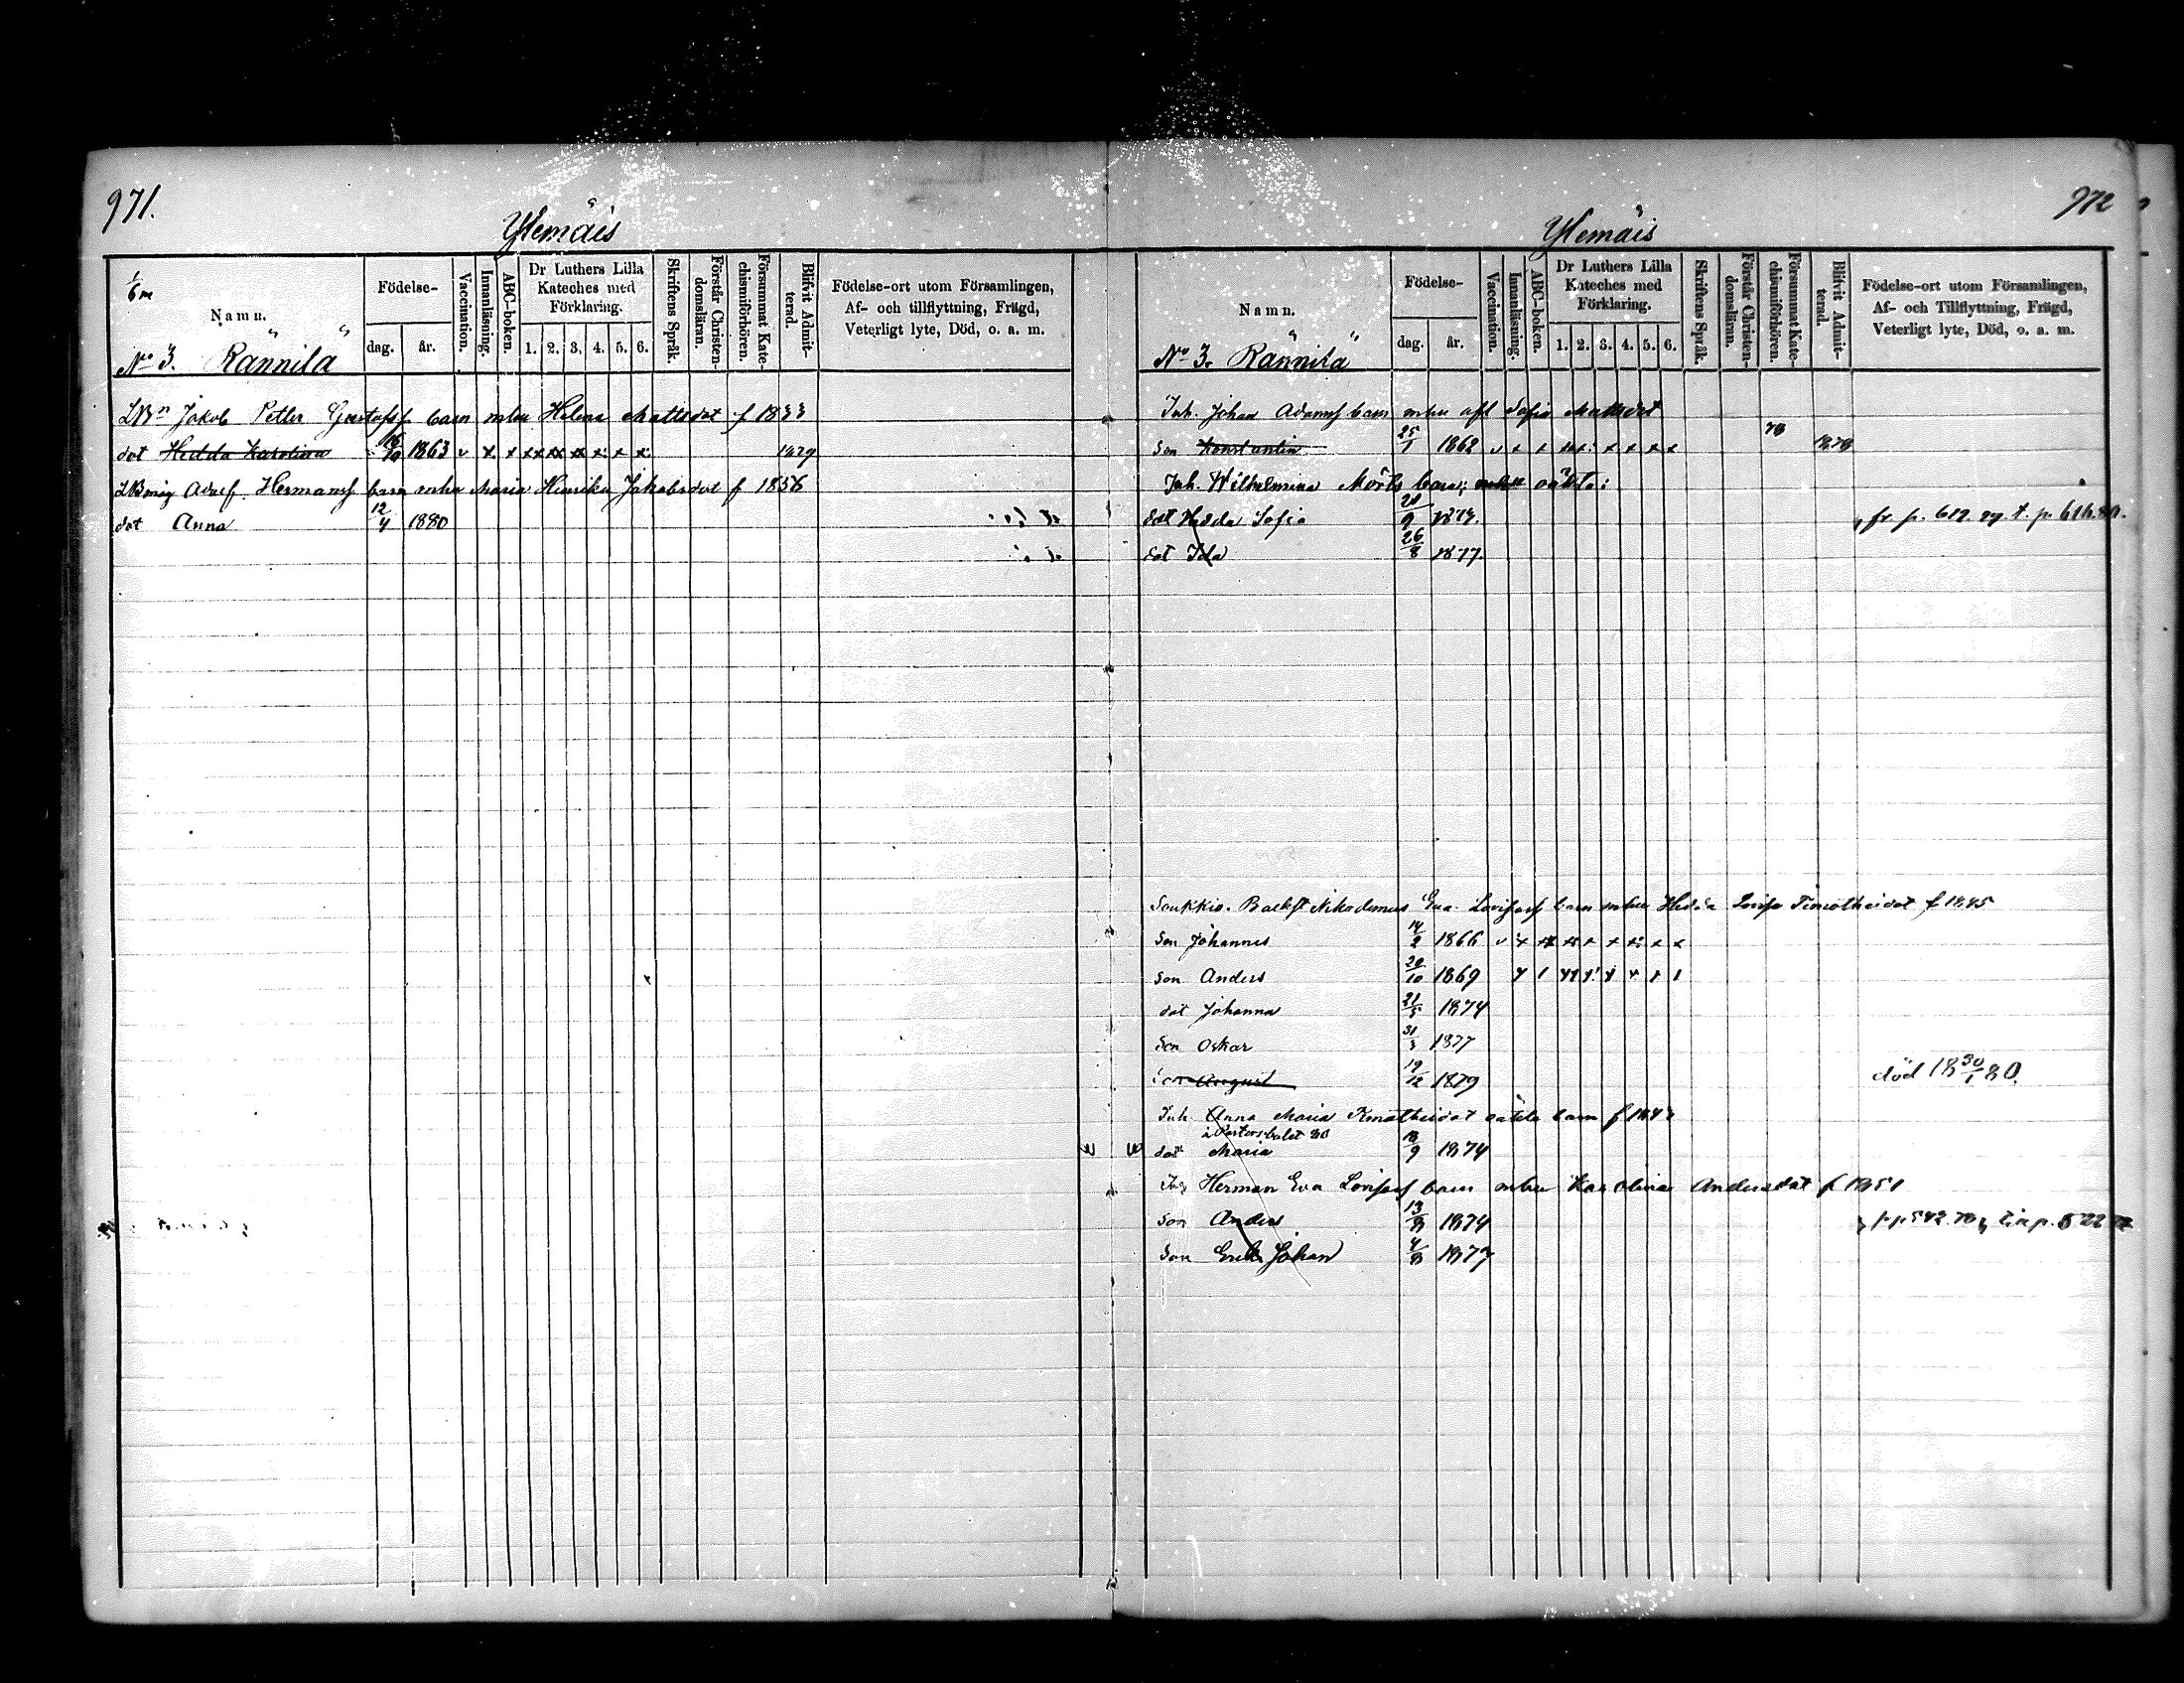 971.
Ylemäis
1/6 m
Namn.
No 3. Rännilä
Födelse-
dag. år.
Vaccination.
Innanläsning.
ABC-boken.
Dr Luthers Lilla Kateches med Förklaring.
1. 2. 3. 4. 5. 6.
Skriftens Språk.
Förstår Christendomsläran.
Försummat Katechismiförhören.
Blifvit Admitterad.
Födelse-ort utom Församlingen,
Af- och tillflyttning, Frägd,
Veterligt lyte, Död, o. a. m.
Jakob Petter Gustafss barn mhu Helena Mattsdot f 1833
dot Hedda Karolina 1863 1879
Adolf Hermanss barn mhu Maria Henrika Jakobsdot f 1856
dot Anna 12/4 1880
972
Ylemäis
Namn.
No 3. Rännilä
Födelse-
dag. år.
Vaccination.
Innanläsning.
ABC-boken.
Dr Luthers Lilla Kateches med Förklaring.
1. 2. 3. 4. 5. 6.
Skriftens Språk.
Förstår Christendomsläran.
Försummat Katechismiförhören.
Blifvit Admitterad.
Födelse-ort utom Församlingen,
Af- och Tillflyttning, Frägd,
Veterligt lyte, Död, o. a. m.
Inh. Johan Adamss barn mhu afl Sofia Mattsdot
Son Konstantin 25/1 1862 78 1878
Inh. Wilhelmina Mörks barn; oäkta:
dot Hedda Sofia fr p. 619.
dot Ida 26/8 1877
Soukkio. Backst Nikodemus Eva Lovisass barn mhu Hedda Lovisa Timotheidot f 1845
Son Johannes 14/2 1866
Son Anders 20/10 1869
dot Johanna 21/5 1874
Son Oskar 1877
Son August 19/12 1879 död 18 30/1 80.
Inh Anna Maria Timotheidot oäkta barn
dot Maria 1874
Herman Eva Lovisass barn mhu Karolina Andersdot f 1851
Son Anders 13/8 1874
Son Erik Johan 4/8 1877